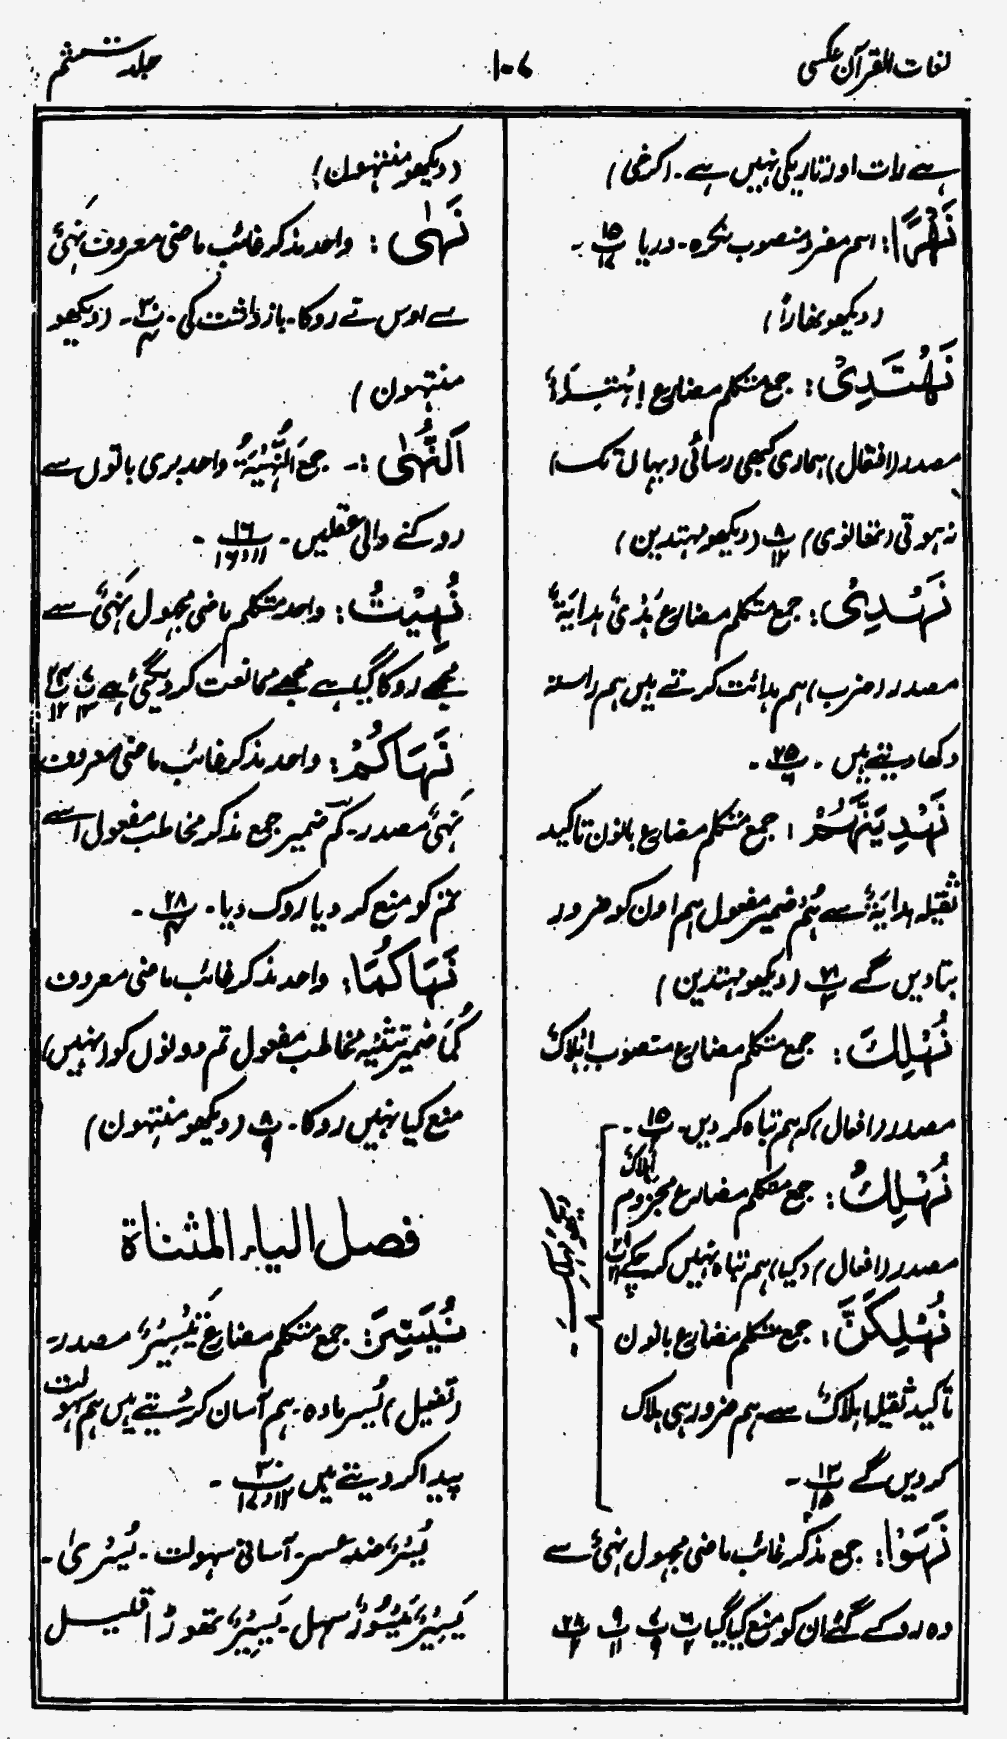 لغات القرآن عکسی
۱۰۷
جلد ششم
ہے رات اور تاریکی نہیں ہے۔ اکرخی)
نَهْرًا: اسم مفرد منصوب نکرہ۔ دریا ۱۵ پ ۱۷ ۔
(دیکھو نھارًا)
نَهْتَدِیْ: جمع متکلم مضارع اِہْتِدَاءٌ
مصدر (افتعال) ہماری کبھی رسائی (یہاں تک)
نہ ہوتی (نتھانوی) ۸ پ ۱۲ (دیکھو مہتدین)
نَهْدِیْ: جمع متکلم مضارع ہَدْیٌ ہِدایَۃٌ
مصدر (ضرب) ہم ہدائت کرتے ہیں ہم راستہ
دکھا دیتے ہیں ۔ ۲۵ پ ۶ ۔
نَهْدِيَنَّهُمْ: جمع متکلم مضارع بانون تاکید
ثقیلہ ہدایۃٌ سے ہُمْ ضمیر مفعول ہم اون کو ضرور
بتا دیں گے ۲۱ پ ۳ (دیکھو مہتدین)
نُهْلِكَ: جمع متکلم مضارع منصوب اِہْلاکٌ
مصدر (افعال) کہ ہم تباہ کر دیں۔ ۱۵ پ ۔
نُهْلِكْ: جمع متکلم مضارع مجزوم اِہْلاکٌ
مصدر (افعال) (کیا) ہم تباہ نہیں کر چکے ۲۹ پ ۲۱
نُهْلِكَنَّ: جمع متکلم مضارع بانون
تاکید ثقیلہ اہلاکٌ سے ہم ضرور ہی ہلاک
کر دیں گے ۱۳ پ ۱۵ ۔
نُهُوْا: جمع مذکر غائب ماضی مجہول نہیٌ سے
وہ روکے گئے ان کو منع کیا گیا ۶ پ ۲ ۷ پ ۹ ۹ پ ۱۱ ۲۸ پ ۲
(دیکھو منتہون)
نَهٰى: واحد مذکر غائب ماضی معروف نَہْیٌ
سے اوس نے روکا۔ بازداشت کی۔ ۳۰ پ ۴ ۔ (دیکھو
منتہون)
اَلنُّهٰى: ۔ جمع النُّہْیَۃُ واحد بری باتوں سے
روکنے والی عقلیں۔ ۱۶ پ ۱۱ و ۱۶ ۔
نُهِيْتُ: واحد متکلم ماضی مجہول نَہْیٌ سے
مجھے روکا گیا ہے مجھے ممانعت کر دیگئی ہے ۷ پ ۱۳ ۲۴ پ ۱۲
نَهَاكُمْ: واحد مذکر غائب ماضی معروف
نَہْیٌ مصدر۔ کم ضمیر جمع مذکر مخاطب مفعول اسے
تم کو منع کر دیا روک دیا۔ ۲۸ پ ۴ ۔
نَهَاكُمَا: واحد مذکر غائب ماضی معروف
کُمَا ضمیر تثنیہ مخاطب مفعول تم دونوں کو (نہیں)
منع کیا نہیں روکا۔ ۸ پ ۹ (دیکھو منتہون)
فصل الیاء المثناۃ
نُيَسِّرَ: جمع متکلم مضارع تَیْسِیْرٌ مصدر۔
(تفعیل) یُسر مادہ۔ ہم آسان کر دیتے ہیں ہم سہولت
پیدا کر دیتے ہیں ۳۰ پ ۱۲ و ۱۷ ۔
یُسْرٌ ضد عسر۔ آسانی سہولت۔ یُسْرٰی۔
یَسِیْرٌ مَیْسُوْرٌ سہل۔ یَسِیْرٌ تھوڑا قلیل